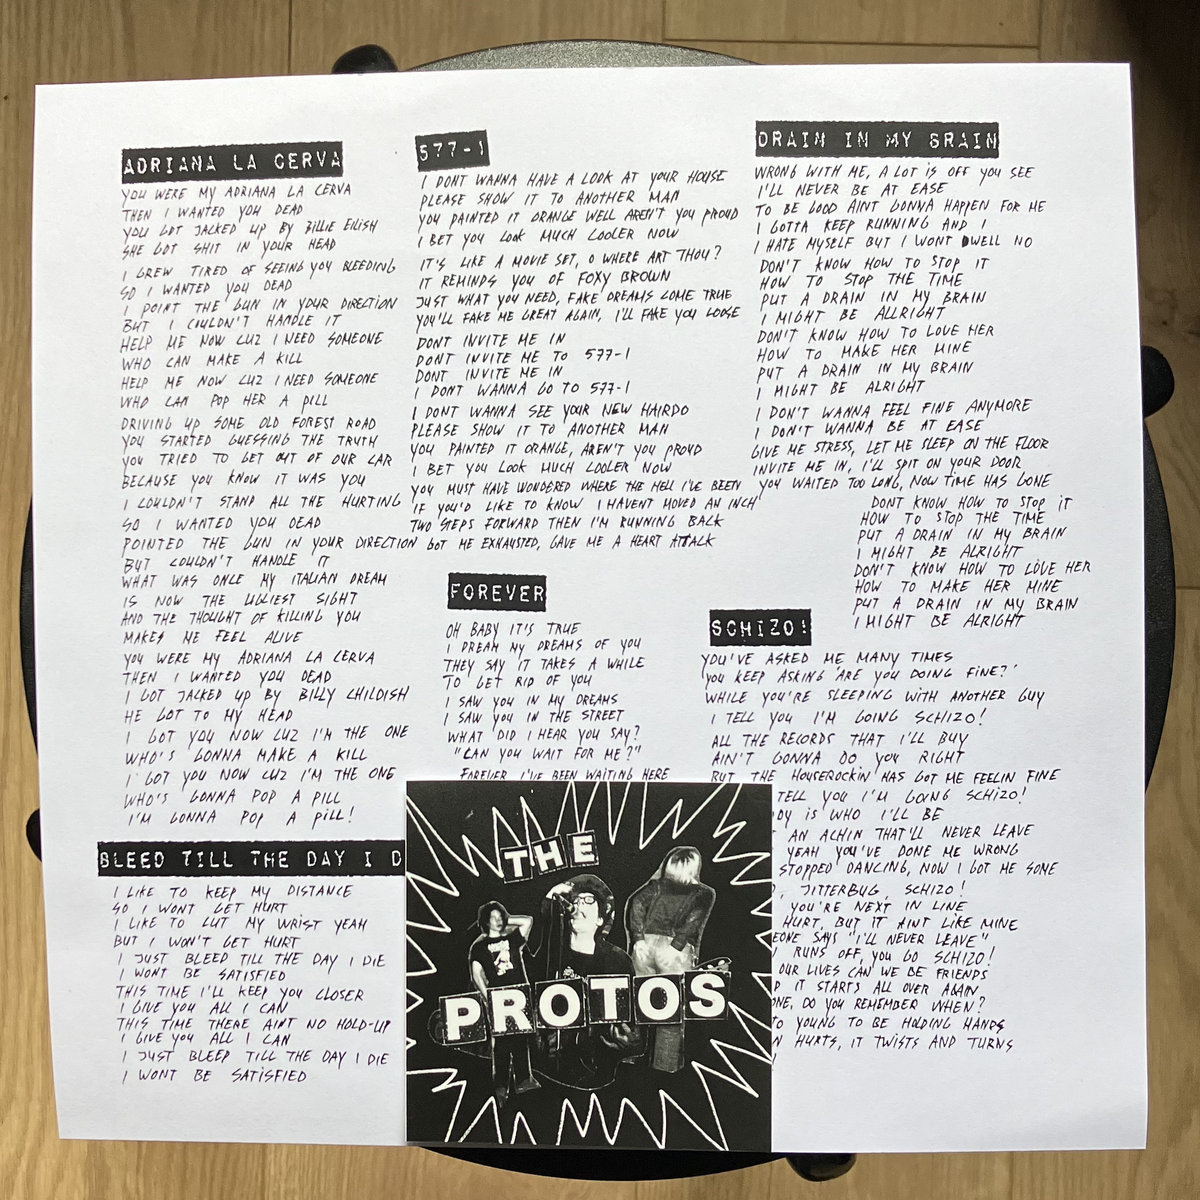 ADRIANA LA CERVA
YOU WERE MY ADRIANA LA CERVA
THEN I WANTED YOU DEAD
YOU GOT JACKED UP BY BILLIE EILISH
SHE GOT SHIT IN YOUR HEAD
I GREW TIRED OF SEEING YOU BLEEDING
SO I WANTED YOU DEAD
I POINT THE GUN IN YOUR DIRECTION
BUT I COULDN'T HANDLE IT
HELP ME NOW CUZ I NEED SOMEONE
WHO CAN MAKE A KILL
HELP ME NOW CUZ I NEED SOMEONE
WHO CAN POP HER A PILL
DRIVING UP SOME OLD FOREST ROAD
YOU STARTED GUESSING THE TRUTH
YOU TRIED TO GET OUT OF OUR CAR
BECAUSE YOU KNOW IT WAS YOU
I COULDN'T STAND ALL THE HURTING
SO I WANTED YOU DEAD
POINTED THE GUN IN YOUR DIRECTION
BUT COULDN'T HANDLE IT
WHAT WAS ONCE MY ITALIAN DREAM
IS NOW THE UGLIEST SIGHT
AND THE THOUGHT OF KILLING YOU
MAKES ME FEEL ALIVE
YOU WERE MY ADRIANA LA CERVA
THEN I WANTED YOU DEAD
I GOT JACKED UP BY BILLY CHILDISH
HE GOT TO MY HEAD
I GOT YOU NOW CUZ I'M THE ONE
WHO'S GONNA MAKE A KILL
I GOT YOU NOW CUZ I'M THE ONE
WHO'S GONNA POP A PILL
I'M GONNA POP A PILL!
BLEED TILL THE DAY I D
I LIKE TO KEEP MY DISTANCE
SO I WONT GET HURT
I LIKE TO CUT MY WRIST YEAH
BUT I WON'T GET HURT
I JUST BLEED TILL THE DAY I DIE
I WONT BE SATISFIED
THIS TIME I'LL KEEP YOU CLOSER
I GIVE YOU ALL I CAN
THIS TIME THERE AINT NO HOLD-UP
I GIVE YOU ALL I CAN
I JUST BLEEP TILL THE DAY I DIE
I WONT BE SATISFIED
577-1
I DONT WANNA HAVE A LOOK AT YOUR HOUSE
PLEASE SHOW IT TO ANOTHER MAN
YOU PAINTED IT ORANGE WELL AREN'T YOU PROUD
I BET YOU LOOK MUCH COOLER NOW
IT'S LIKE A MOVIE SET, O WHERE ART THOU?
IT REMINDS YOU OF FOXY BROWN
JUST WHAT YOU NEED, FAKE DREAMS COME TRUE
YOU'LL FAKE ME GREAT AGAIN, I'LL FAKE YOU LOOSE
DONT INVITE ME IN
DONT INVITE ME TO 577-1
DONT INVITE ME IN
I DONT WANNA GO TO 577-1
I DONT WANNA SEE YOUR NEW HAIRDO
PLEASE SHOW IT TO ANOTHER MAN
YOU PAINTED IT ORANGE, AREN'T YOU PROUD
I BET YOU LOOK MUCH COOLER NOW
YOU MUST HAVE WONDERED WHERE THE HELL I'VE BEEN
IF YOU'D LIKE TO KNOW I HAVENT MOVED AN INCH
TWO STEPS FORWARD THEN I'M RUNNING BACK
GOT ME EXHAUSTED, GAVE ME A HEART ATTACK
FOREVER
OH BABY IT'S TRUE
I DREAM MY DREAMS OF YOU
THEY SAY IT TAKES A WHILE
TO GET RID OF YOU
I SAW YOU IN MY DREAMS
I SAW YOU IN THE STREET
WHAT DID I HEAR YOU SAY?
"CAN YOU WAIT FOR ME?"
FOREVER I'VE BEEN WAITING HERE
DRAIN IN MY BRAIN
WRONG WITH ME, A LOT IS OFF YOU SEE
I'LL NEVER BE AT EASE
TO BE GOOD AINT GONNA HAPPEN FOR ME
I GOTTA KEEP RUNNING AND I
I HATE MYSELF BUT I WONT DWELL NO
DON'T KNOW HOW TO STOP IT
HOW TO STOP THE TIME
PUT A DRAIN IN MY BRAIN
I MIGHT BE ALLRIGHT
DON'T KNOW HOW TO LOVE HER
HOW TO MAKE HER MINE
PUT A DRAIN IN MY BRAIN
I MIGHT BE ALRIGHT
I DON'T WANNA FEEL FINE ANYMORE
I DON'T WANNA BE AT EASE
GIVE ME STRESS, LET ME SLEEP ON THE FLOOR
INVITE ME IN, I'LL SPIT ON YOUR DOOR
YOU WAITED TOO LONG, NOW TIME HAS GONE
DONT KNOW HOW TO STOP IT
HOW TO STOP THE TIME
PUT A DRAIN IN MY BRAIN
I MIGHT BE ALRIGHT
DON'T KNOW HOW TO LOVE HER
HOW TO MAKE HER MINE
PUT A DRAIN IN MY BRAIN
I MIGHT BE ALRIGHT
SCHIZO!
YOU'VE ASKED ME MANY TIMES
YOU KEEP ASKING 'ARE YOU DOING FINE?'
WHILE YOU'RE SLEEPING WITH ANOTHER GUY
I TELL YOU I'M GOING SCHIZO!
ALL THE RECORDS THAT I'LL BUY
AIN'T GONNA DO YOU RIGHT
BUT THE HOUSEROCKIN' HAS GOT ME FEELIN FINE
TELL YOU I'M GOING SCHIZO!
DY IS WHO I'LL BE
AN ACHIN THAT'LL NEVER LEAVE
YEAH YOU'VE DONE ME WRONG
STOPPED DANCING, NOW I GOT ME SOME
, JITTERBUG, SCHIZO!
YOU'RE NEXT IN LINE
HURT, BUT IT AINT LIKE MINE
EONE SAYS "I'LL NEVER LEAVE"
RUNS OFF, YOU GO SCHIZO!
OUR LIVES CAN WE BE FRIENDS
IT STARTS ALL OVER AGAIN
ONE, DO YOU REMEMBER WHEN?
TO YOUNG TO BE HOLDING HANDS
HURTS, IT TWISTS AND TURNS
THE
PROTOS